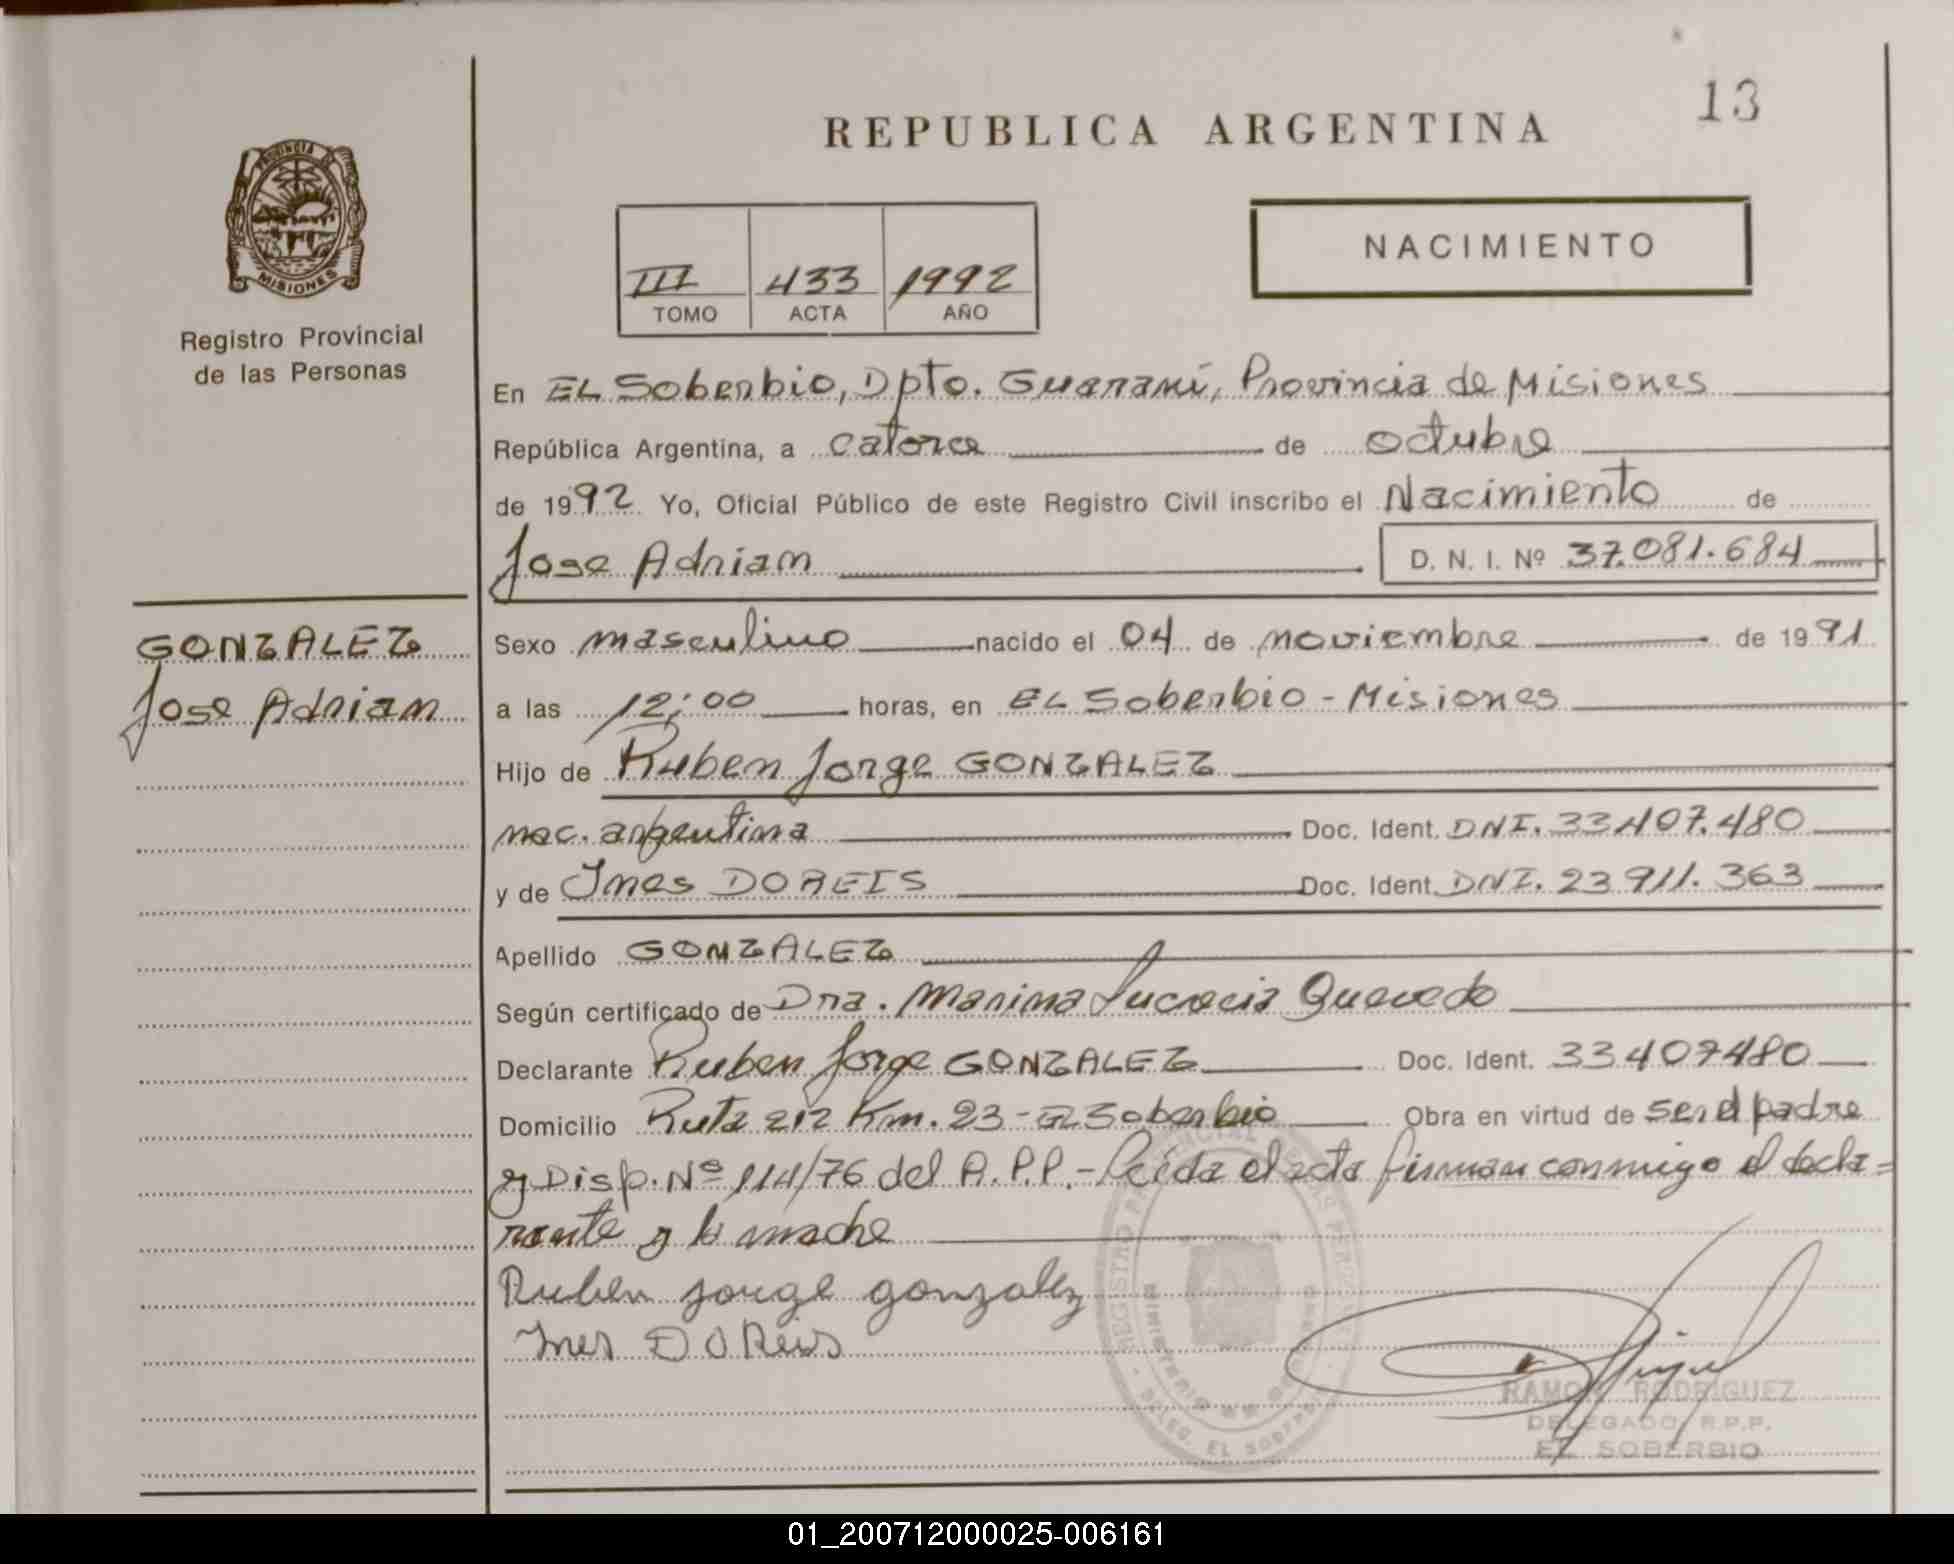 13
REPUBLICA ARGENTINA
NACIMIENTO
PROVINCIA DE
MISIONES
Registro Provincial
de las Personas
III 433 1992
TOMO ACTA AÑO
En EL Soberbio, Dpto. Guaraní, Provincia de Misiones
República Argentina, a catorce de octubre
de 1992 Yo, Oficial Público de este Registro Civil inscribo el Nacimiento de
Jose Adrian D. N. I. Nº 37.081.684
GONZALEZ
Jose Adrian
Sexo masculino nacido el 04 de noviembre de 1991
a las 12:00 horas, en EL Soberbio - Misiones
Hijo de Ruben Jorge GONZALEZ
nac. argentina Doc. Ident. DNI. 33.407.480
y de Ines DOREIS Doc. Ident. DNI. 23.911.363
Apellido GONZALEZ
Según certificado de Dra. Marina Lucrecia Quevedo
Declarante Ruben Jorge GONZALEZ Doc. Ident. 33407480
Domicilio Ruta 212 Km. 23 - El Soberbio Obra en virtud de ser el padre
y Disp. Nº 114/76 del R.P.P. - Leída el acta firman conmigo el decla=
rante y la madre
Ruben Jorge gonzalez
Ines DOReis
RAMON RODRIGUEZ
DELEGADO R.P.P.
EL SOBERBIO
01_200712000025-006161